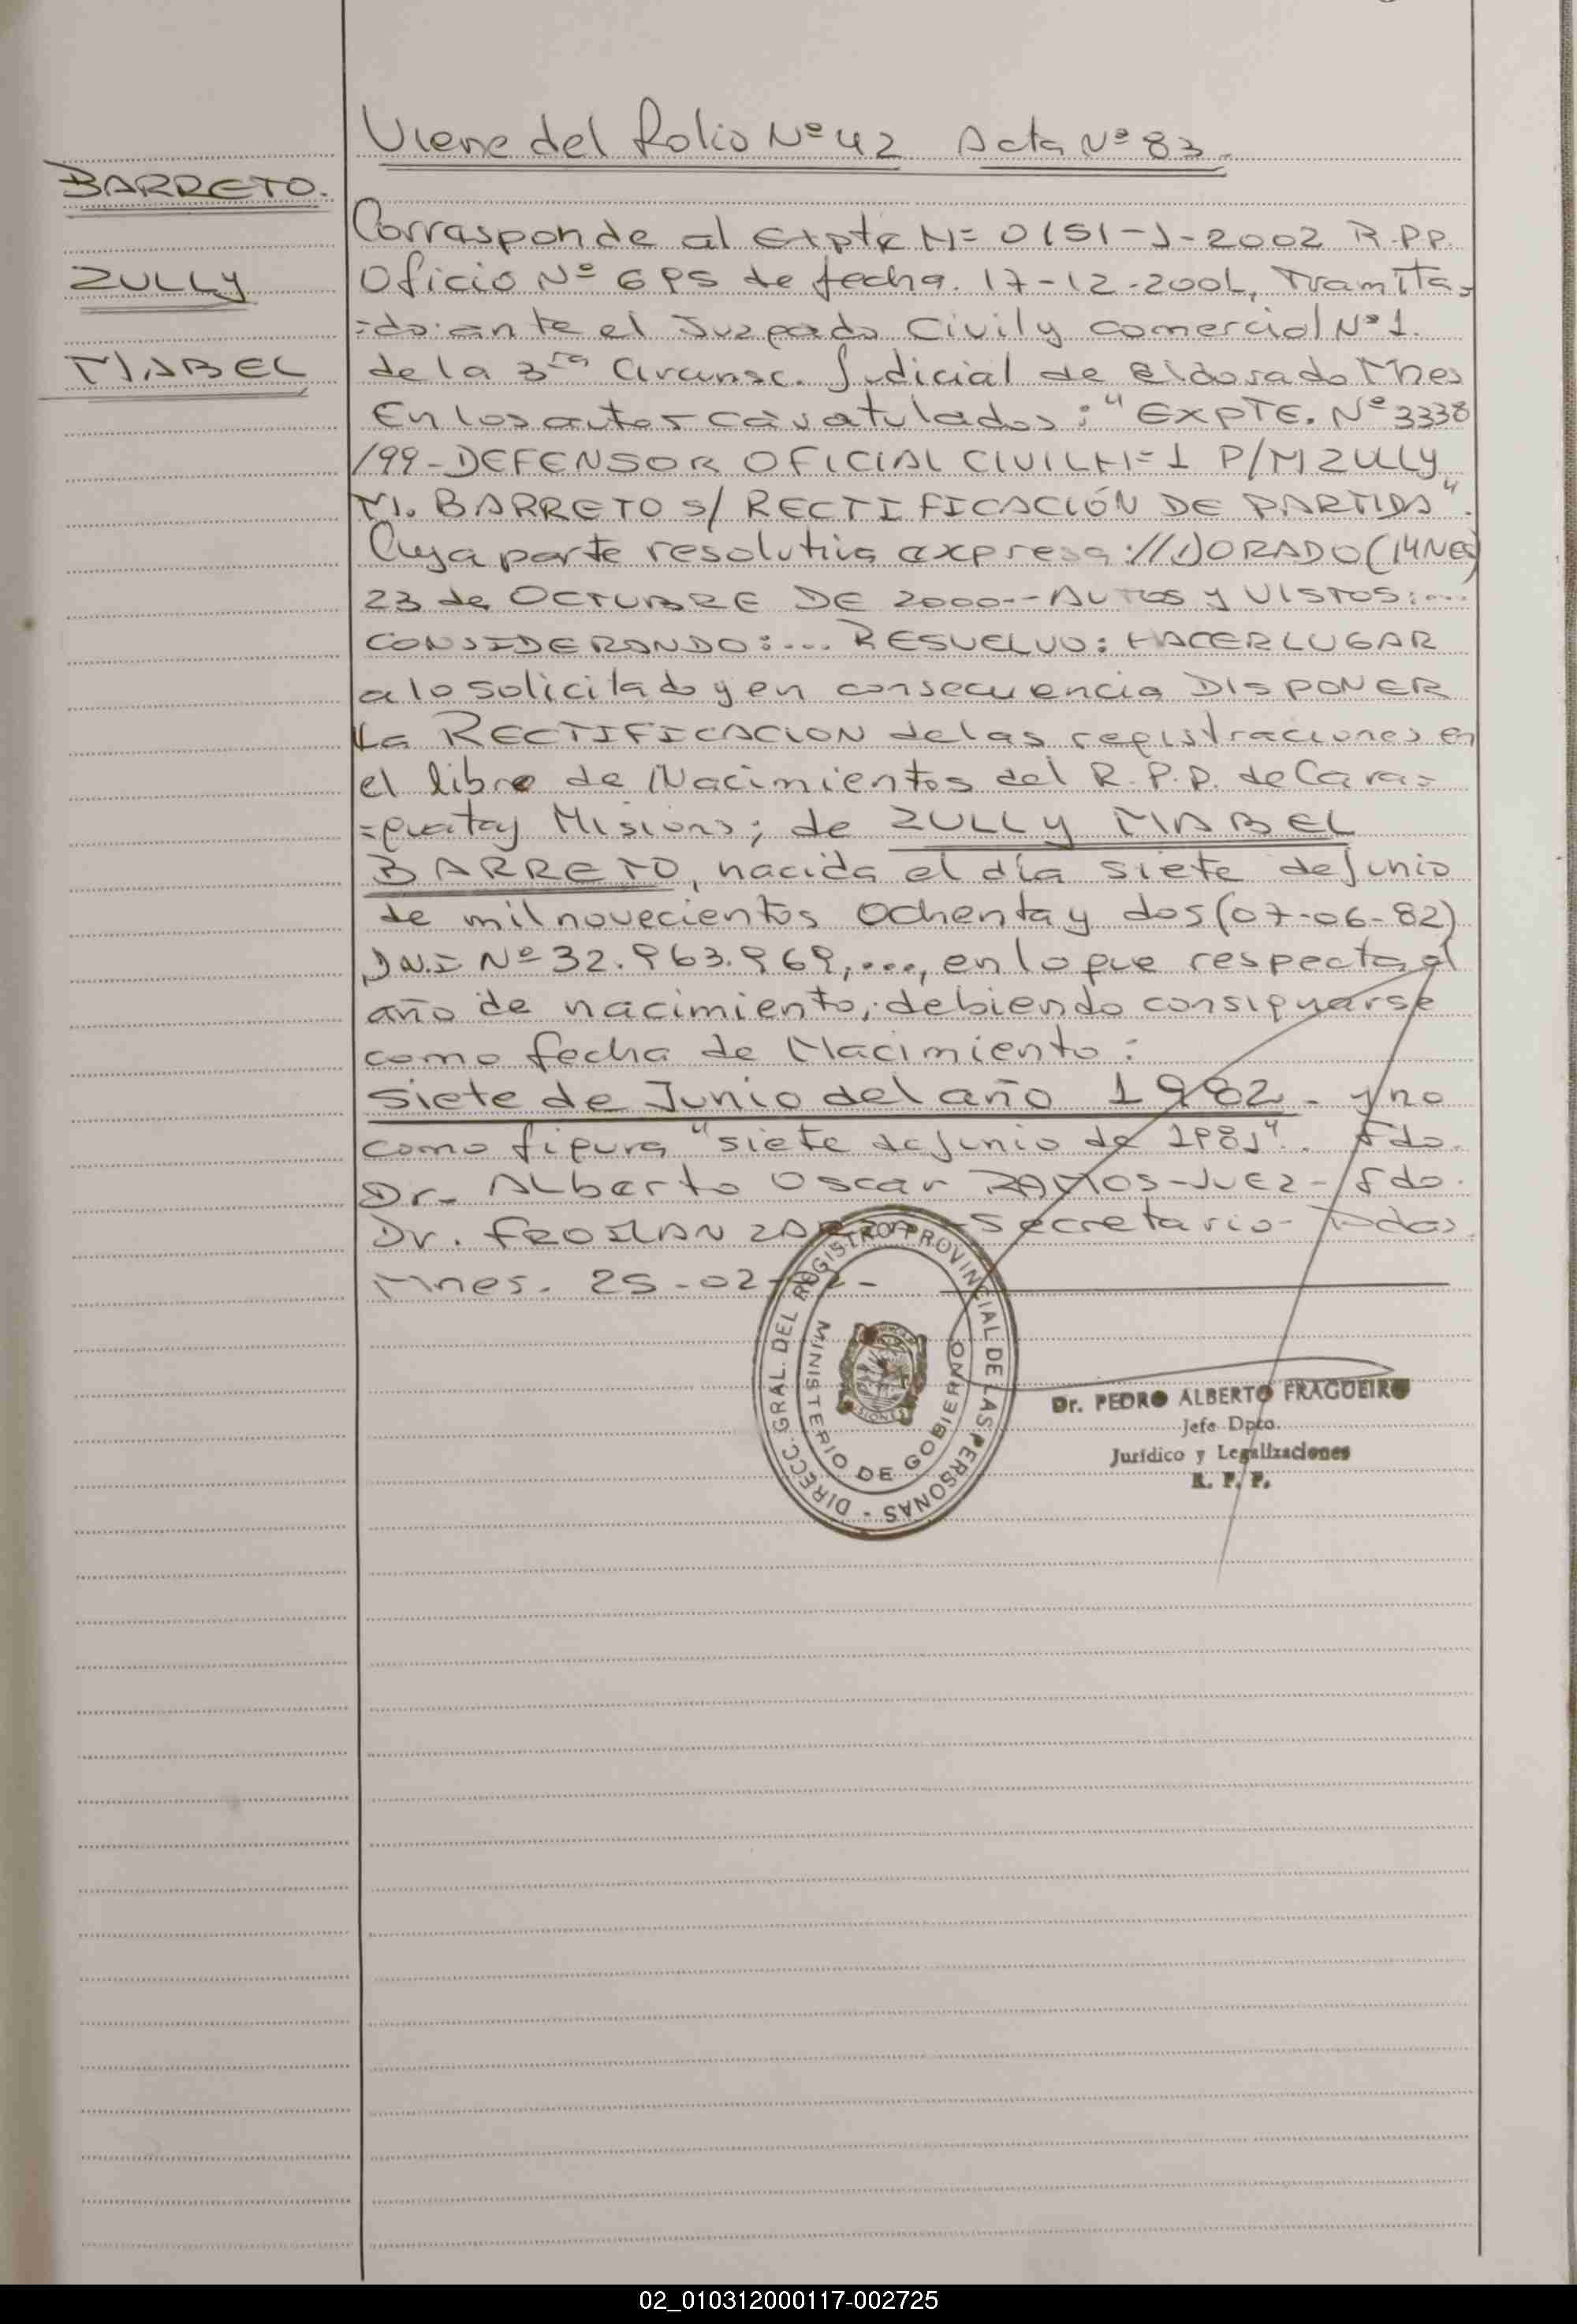 Viene del folio Nº 42 Acta Nº 83.
BARRETO.
ZULLY
MABEL
Corresponde al Expte Nº 0151-J-2002 R.P.P.
Oficio Nº 695 de fecha. 17-12-2001, Tramita=
=do: ante el Juzgado Civil y comercial Nº 1.
de la 3ra Circunsc. Judicial de Eldorado Mnes
En los autos caratulados: "EXPTE. Nº 3338
/99-DEFENSOR OFICIAL CIVIL Nº 1 P/M ZULLY
M. BARRETO S/ RECTIFICACIÓN DE PARTIDA".
Cuya parte resolutiva expresa://DORADO (MNES)
23 de OCTUBRE DE 2000-- AUTOS y VISTOS:...
CONSIDERANDO:... RESUELVO: HACER LUGAR
a lo solicitado y en consecuencia DISPONER
La RECTIFICACION de las registraciones en
el libro de Nacimientos del R.P.P. de Cara=
=guatay Misions; de ZULLY MABEL
BARRETO, nacida el día siete de Junio
de mil novecientos ochenta y dos (07-06-82)
D.N.I Nº 32.963.969,..., en lo que respecta al
año de nacimiento, debiendo consignarse
como fecha de Nacimiento:
siete de Junio del año 1982 - y no
como figura "siete de Junio de 1981". Fdo.
Dr. Alberto Oscar RAMOS-JUEZ- Fdo.
Dr. FROILAN -Secretario-
Mnes. 25-02-02-
DIRECC. GRAL. DEL REGISTRO PROVINCIAL DE LAS PERSONAS -
MINISTERIO DE GOBIERNO
MISIONES
Dr. PEDRO ALBERTO FRAGUEIRO
Jefe Dpto.
Jurídico y Legalizaciones
R. P. P.
02_010312000117-002725